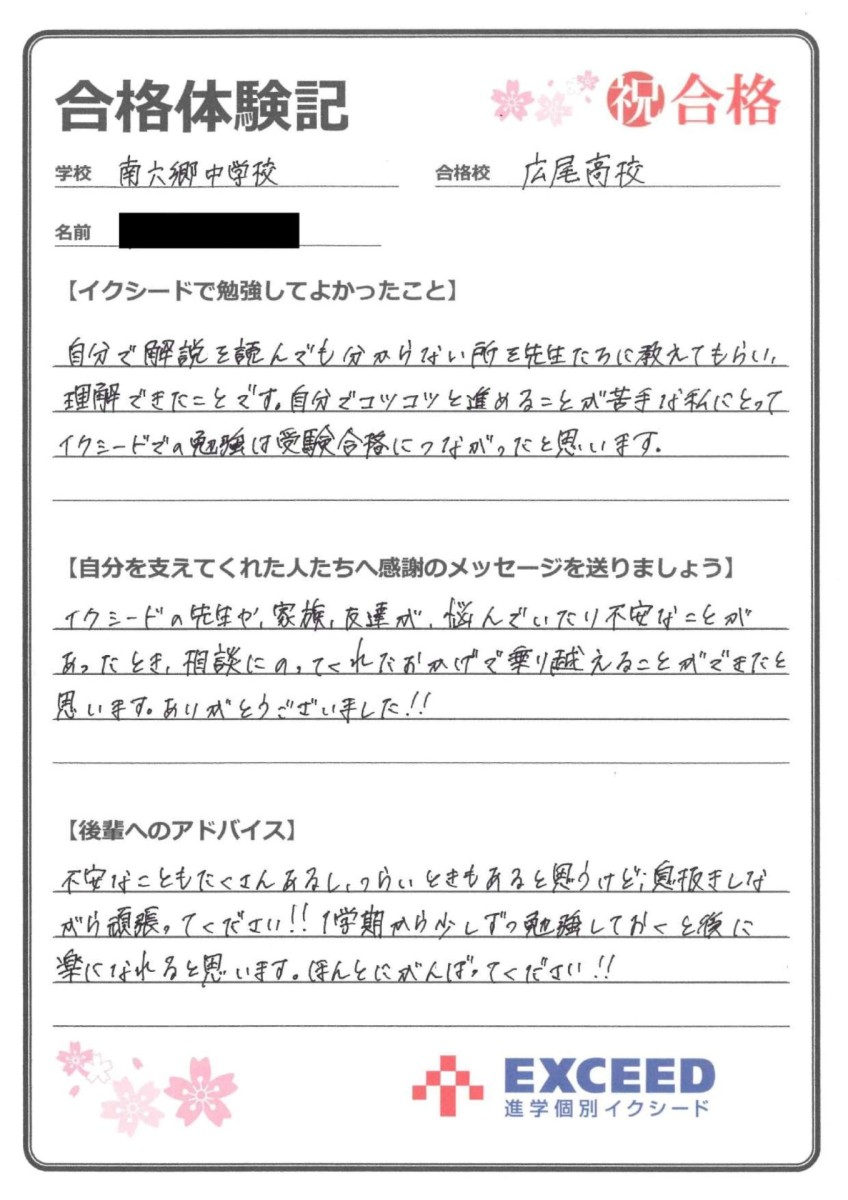 合格体験記
祝合格
学校 南六郷中学校
合格校 広尾高校
名前
【イクシードで勉強してよかったこと】
自分で解説を読んでも分からない所を先生たちに教えてもらい、
理解できたことです。自分でコツコツと進めることが苦手な私にとって
イクシードでの勉強は受験合格につながったと思います。
【自分を支えてくれた人たちへ感謝のメッセージを送りましょう】
イクシードの先生や、家族、友達が、悩んでいたり不安なことが
あったとき、相談にのってくれたおかげで乗り越えることができたと
思います。ありがとうございました!!
【後輩へのアドバイス】
不安なこともたくさんあるし、つらいときもあると思うけど、息抜きしな
がら頑張ってください!! 1学期から少しずつ勉強しておくと後に
楽になれると思います。ほんとにがんばってください!!
EXCEED
進学個別イクシード